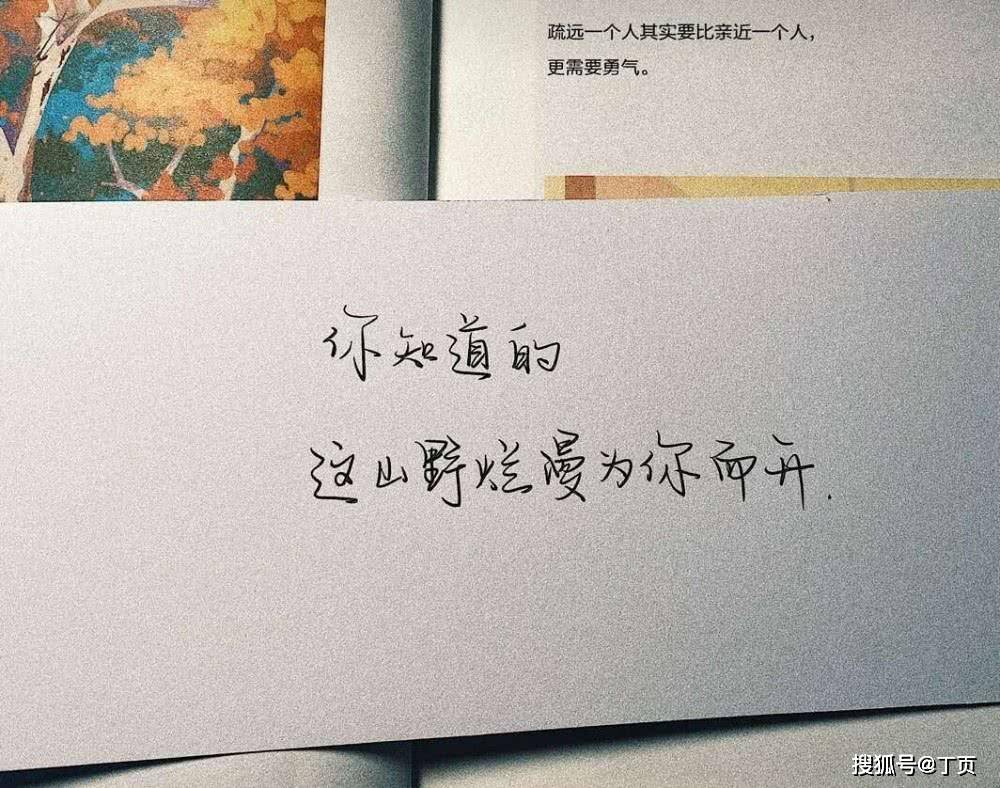 疏远一个人其实要比亲近一个人，
更需要勇气。
你知道的
这山野烂漫为你而开.
搜狐号@丁页